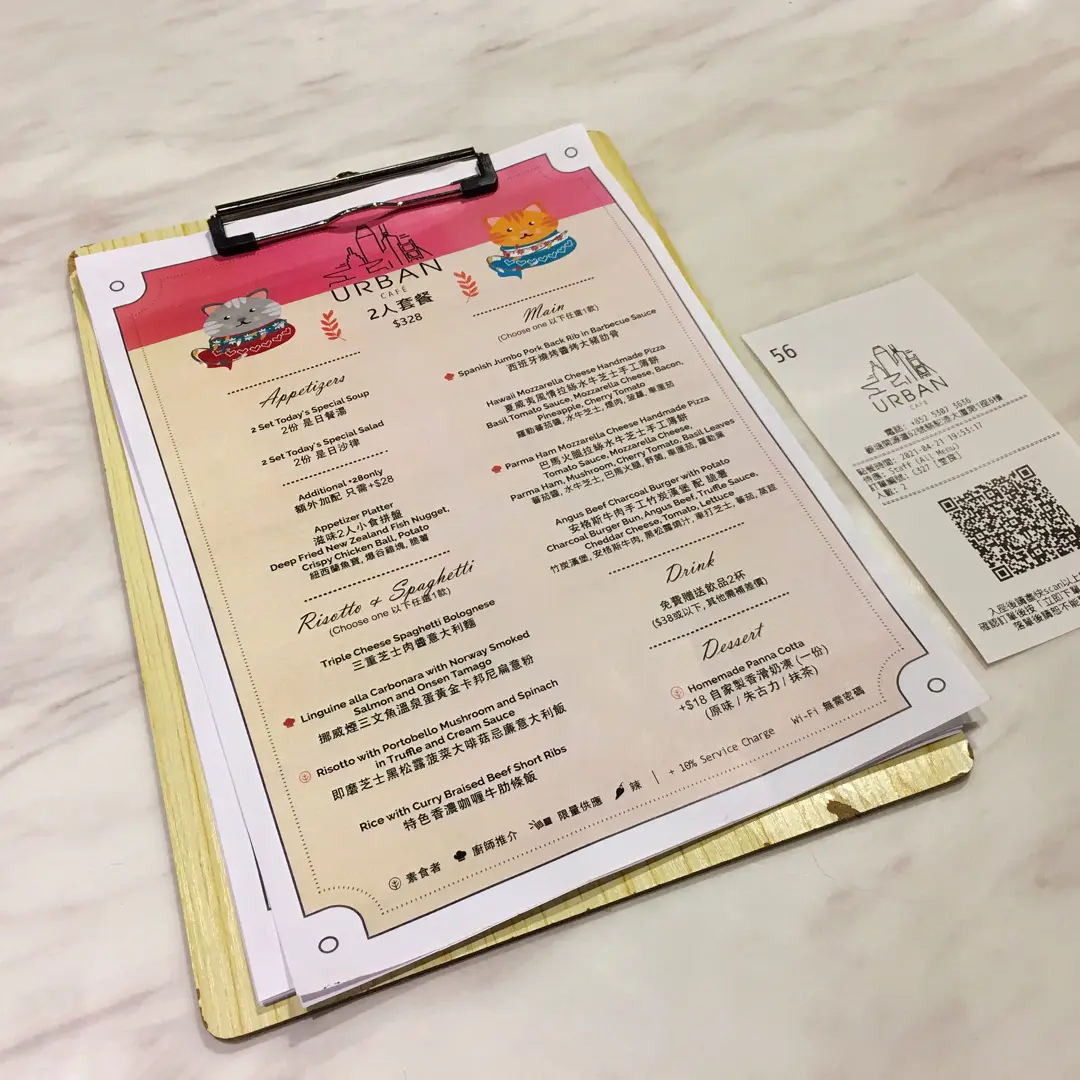 URBAN
CAFÉ
2人套餐
$328
Appetizers
2 Set Today's Special Soup
2份 是日餐湯
2 Set Today's Special Salad
2份 是日沙律
Additional +28only
額外加配 只需+$28
Appetizer Platter
滋味2人小食拼盤
Deep Fried New Zealand Fish Nugget,
Crispy Chicken Ball, Potato
紐西蘭魚寶, 爆谷雞塊, 脆薯
Risotto & Spaghetti
(Choose one 以下任選1款)
Triple Cheese Spaghetti Bolognese
三重芝士肉醬意大利麵
Linguine alla Carbonara with Norway Smoked
Salmon and Onsen Tamago
挪威煙三文魚溫泉蛋黃金卡邦尼扁意粉
Risotto with Portobello Mushroom and Spinach
in Truffle and Cream Sauce
即磨芝士黑松露菠菜大啡菇忌廉意大利飯
Rice with Curry Braised Beef Short Ribs
特色香濃咖喱牛肋條飯
Main
(Choose one 以下任選1款)
Spanish Jumbo Pork Back Rib in Barbecue Sauce
西班牙燒烤醬烤大豬肋骨
Hawaii Mozzarella Cheese Handmade Pizza
夏威夷風情拉絲水牛芝士手工薄餅
Basil Tomato Sauce, Mozzarella Cheese, Bacon,
Pineapple, Cherry Tomato
羅勒蕃茄醬, 水牛芝士, 煙肉, 菠蘿, 車厘茄
Parma Ham Mozzarella Cheese Handmade Pizza
巴馬火腿拉絲水牛芝士手工薄餅
Tomato Sauce, Mozzarella Cheese,
Parma Ham, Mushroom, Cherry Tomato, Basil Leaves
蕃茄醬, 水牛芝士, 巴馬火腿, 野菌, 車厘茄, 羅勒葉
Angus Beef Charcoal Burger with Potato
安格斯牛肉手工竹炭漢堡 配 脆薯
Charcoal Burger Bun, Angus Beef, Truffle Sauce,
Cheddar Cheese, Tomato, Lettuce
竹炭漢堡, 安格斯牛肉, 黑松露燒汁, 車打芝士, 蕃茄, 萵苣
Drink
免費贈送飲品2杯
($38或以下, 其他需補差價)
Dessert
Homemade Panna Cotta
+$18 自家製香滑奶凍 (一份)
(原味 / 朱古力 / 抹茶)
素食者 廚師推介 限量供應 辣 | + 10% Service Charge Wi-Fi 無需密碼
56
URBAN
CAFÉ
電話: +852 5307 3636
點餐時間: 2021-04-21 19:33:17
侍應: Staff(All Menu)
訂單編號: C327 [堂食]
人數: 2
入座後請盡快scan以上
確認訂單後按「立即下單
落單後請恕不能